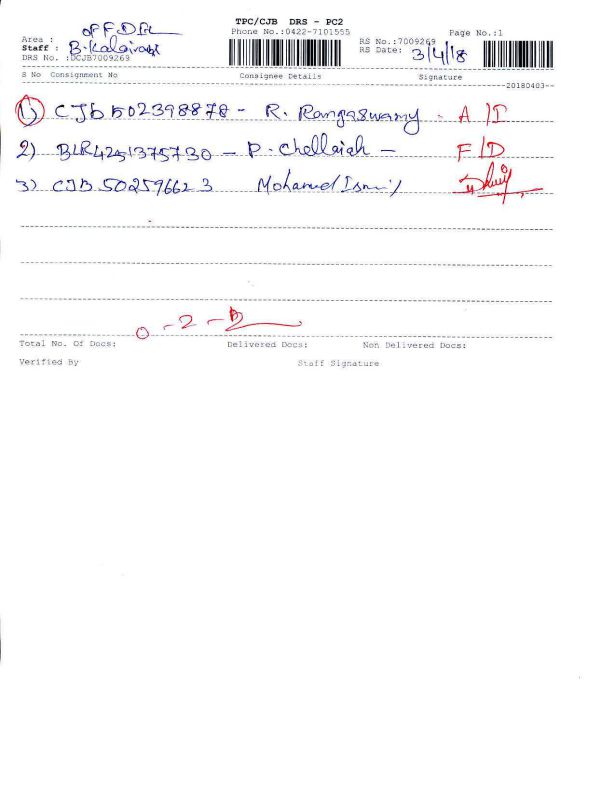 TPC/CJB DRS - PC2
Phone No.:0422-7101555
Page No.:1
Area : OFF.DEL
Staff : B.Kalaivani
DRS No. :DCJB7009269
RS No.:7009269
RS Date: 3/4/18
S No Consignment No Consignee Details Signature
--20180403--
1) CJB 502398878 - R. Rangaswamy - A/I
2) BLR4251375730 - P. Chellaiah - F/D
3) CJB 502596623 Mohamed Ismil
0 - 2 -
Total No. Of Docs: Delivered Docs: Non Delivered Docs:
Verified By Staff Signature